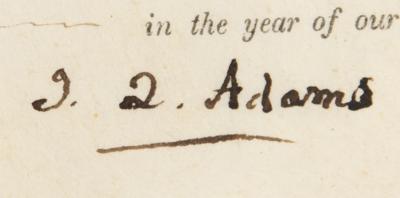 in the year of our
J. Q. Adams